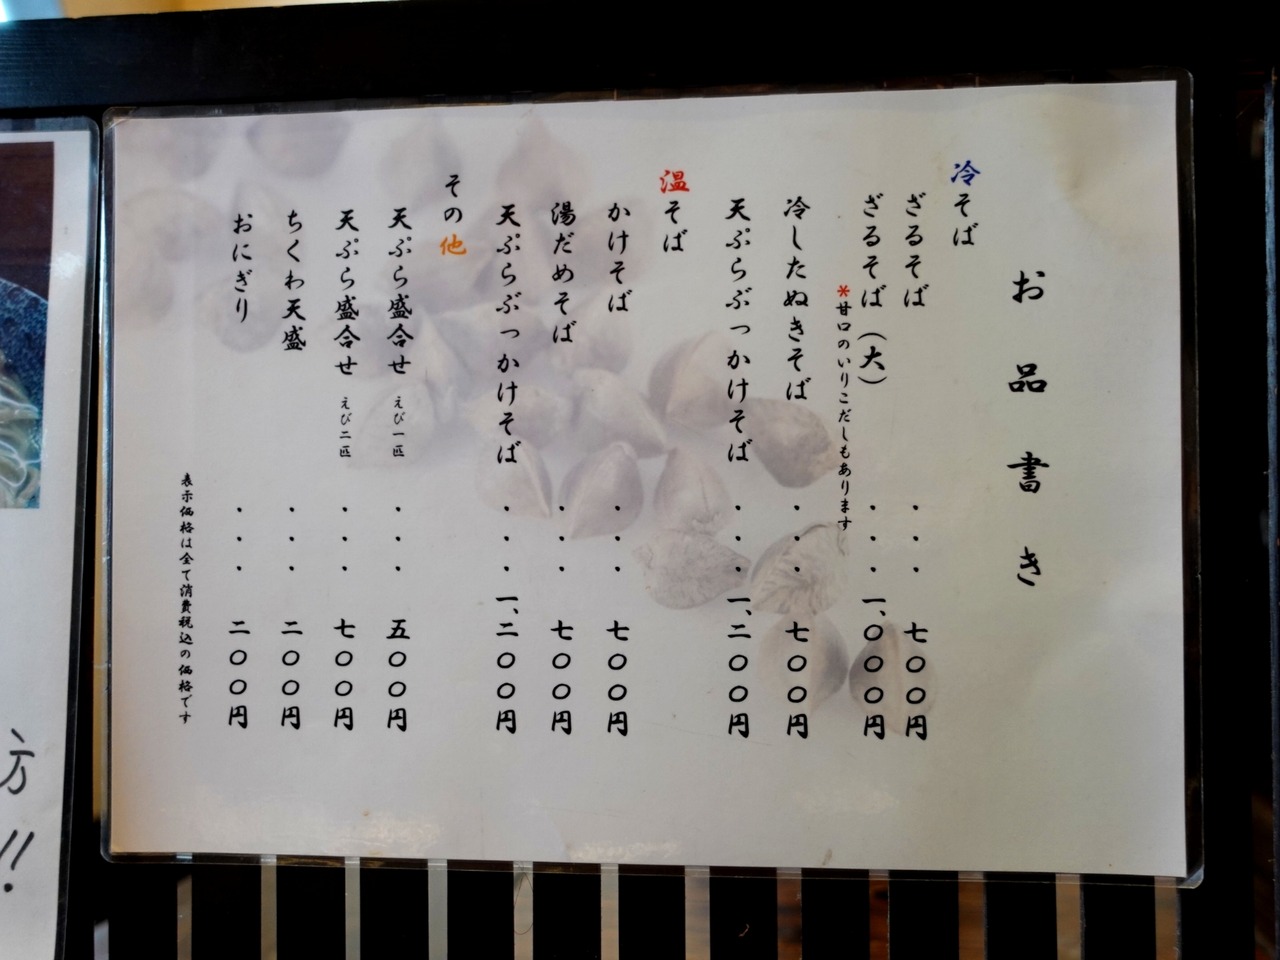 お品書き
冷そば
ざるそば・・・七〇〇円
ざるそば（大）・・・一、〇〇〇円
*甘口のいりこだしもあります
冷したぬきそば・・・七〇〇円
天ぷらぶっかけそば・・・一、二〇〇円
温そば
かけそば・・・七〇〇円
湯だめそば・・・七〇〇円
天ぷらぶっかけそば・・・一、二〇〇円
その他
天ぷら盛合せ えび一匹・・・五〇〇円
天ぷら盛合せ えび二匹・・・七〇〇円
ちくわ天盛・・・二〇〇円
おにぎり・・・二〇〇円
表示価格は全て消費税込の価格です
方
!!